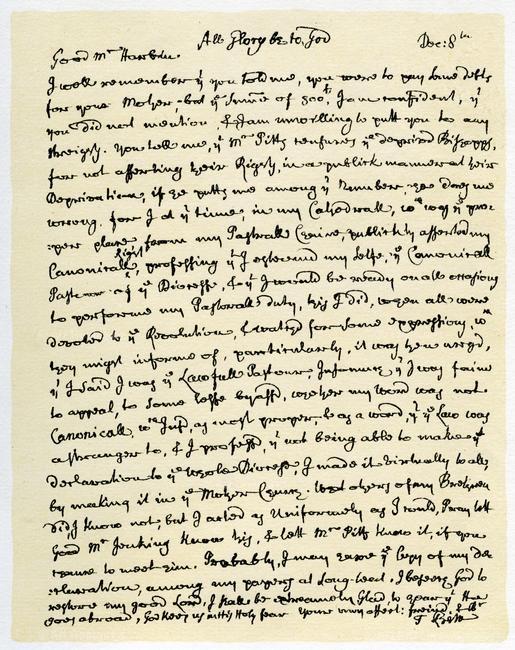 All Glory be to God
Dec: 8th
Good Mr Harbin.
I well remember yt you told me, you were to pay some debts
for your Mother, but ye summe of 800l, I am confident, yt
you did not mention, & I am unwilling to putt you to any
streights. You tell me, yt Mr Pitts censures ye deprived Bishopps,
for not asserting their Rights, in a publick manner at their
Deprivation, if he putts me among yt Number, he does me
wrong. for I at yt time, in my Cathedrall, wch was ye pro-
:per place, from my Pastorall Chaire, publickly asserted my
Canonicall right, professing yt I esteemed my selfe, ye Canonicall
Pastour of ye Diocesse, & yt I would be ready on all occasions
to performe my Pastorall duty, this I did, when all were
devoted to ye Revolution, & watched for some expression, wch
they might informe of, particularly, it was then urged,
yt I said I was ye Lawfull Pastour, Insomuch yt I was faine
to appeal, to some lesse byass'd, whether my word was not
Canonicall, wch I us'd, as most proper, & as a word, yt ye Law was
a stranger to, & I profess'd, yt not being able to make yt
declaration to ye whole Diocesse, I made it virtually to all,
by making it in ye Mother Church. What others of my Brethren
did, I know not, but I acted as Uniformely as I could, Pray lett
good Mr Jenkins know this, & lett Mr Pitts know it, if you
chance to meet him. Probably, I may have ye Copy of my de-
:claration, among my papers at Long-leat, I beseech God to
restore my good Lord, I shall be extreamely Glad, to hear yt He
goes abroad, God keep us in His Holy fear Your very affect: freind. & Br